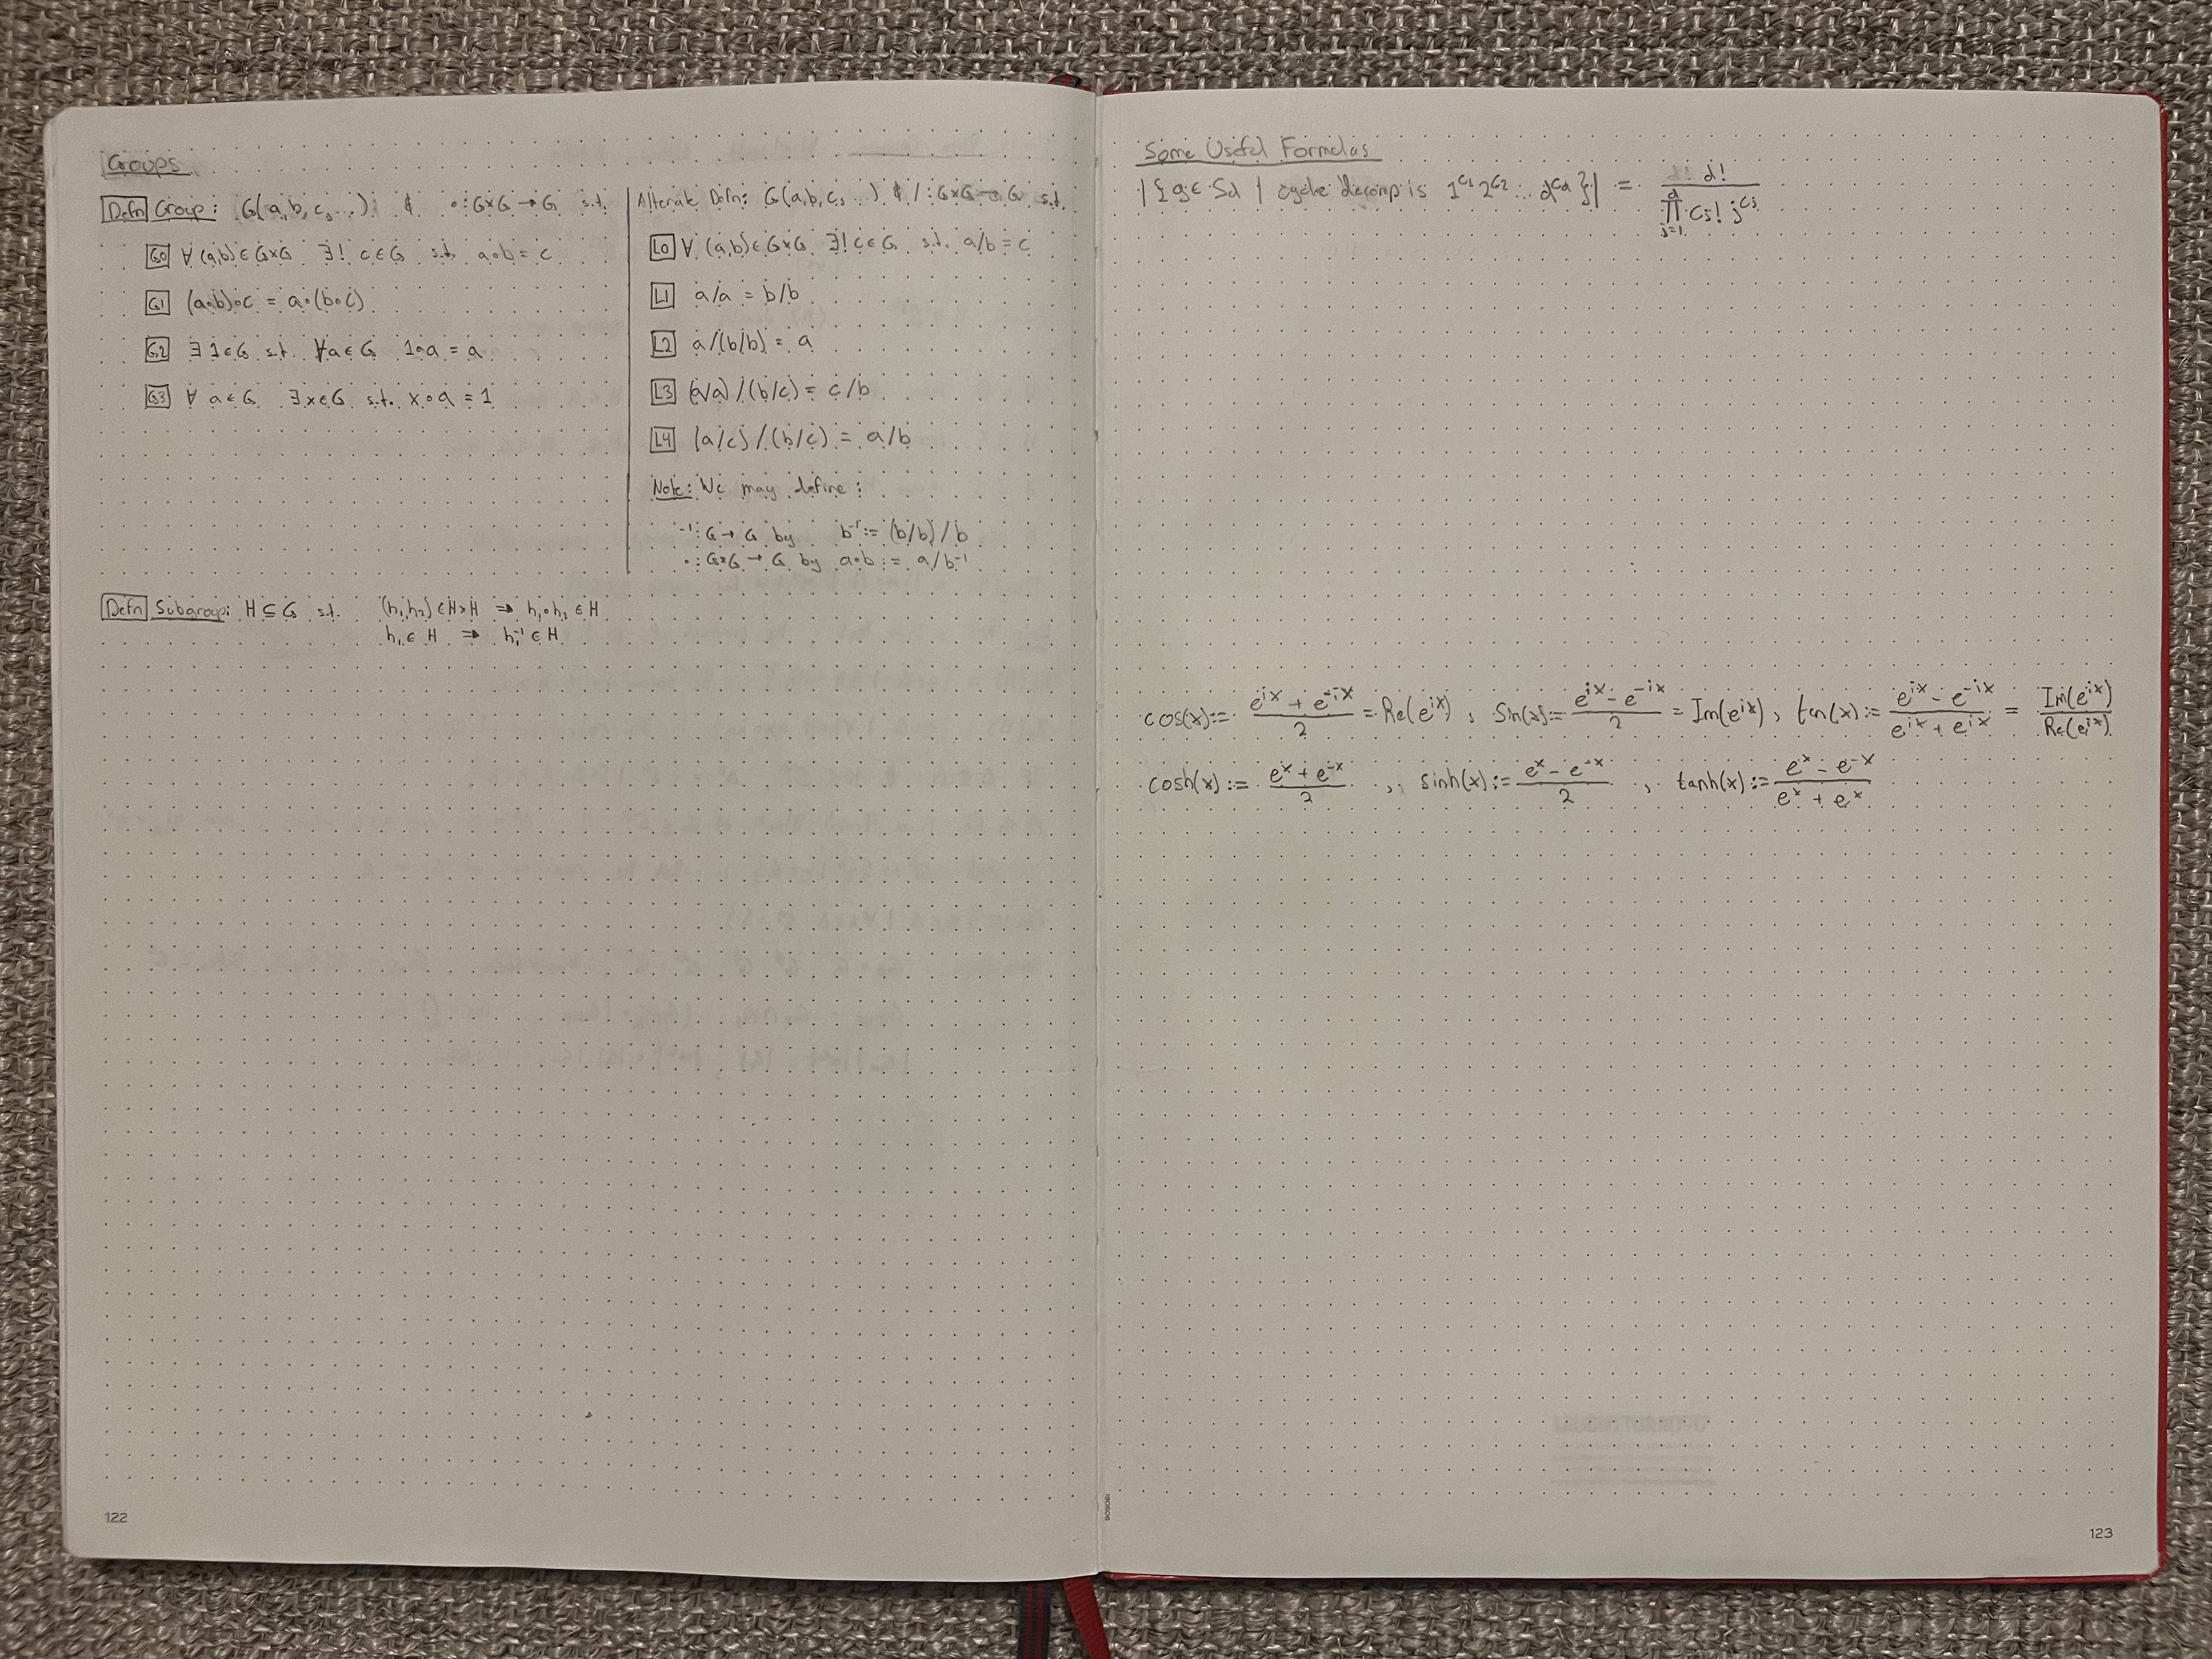 Groups
Defn Group: G(a,b,c,...) & ∘:G×G→G s.t.
G0 ∀(a,b)∈G×G ∃! c∈G s.t. a∘b=c
G1 (a∘b)∘c = a∘(b∘c)
G2 ∃1∈G s.t. ∀a∈G 1∘a=a
G3 ∀a∈G ∃x∈G s.t. x∘a=1
Alternate Defn: G(a,b,c,...) & /:G×G→G s.t.
L0 ∀(a,b)∈G×G ∃! c∈G s.t. a/b=c
L1 a/a = b/b
L2 a/(b/b) = a
L3 (a/a)/(b/c) = c/b
L4 (a/c)/(b/c) = a/b
Note: We may define:
⁻¹:G→G by b⁻¹:=(b/b)/b
∘:G×G→G by a∘b:=a/b⁻¹
Defn Subgroup: H⊆G s.t. (h₁,h₂)∈H×H ⇒ h₁∘h₂∈H
h₁∈H ⇒ h₁⁻¹∈H
122
180606
Some Useful Formulas
|{g∈S_d | cycle decomp is 1^{c₁} 2^{c₂} ... d^{c_d}}| = d! / ∏_{j=1}^{d} c_j! j^{c_j}
cos(x):= (e^{ix} + e^{-ix})/2 = Re(e^{ix}), sin(x):= (e^{ix} - e^{-ix})/2 = Im(e^{ix}), tan(x):= (e^{ix} - e^{-ix})/(e^{ix} + e^{ix}) = Im(e^{ix})/Re(e^{ix})
cosh(x):= (e^x + e^{-x})/2, sinh(x):= (e^x - e^{-x})/2, tanh(x):= (e^x - e^{-x})/(e^x + e^x)
123